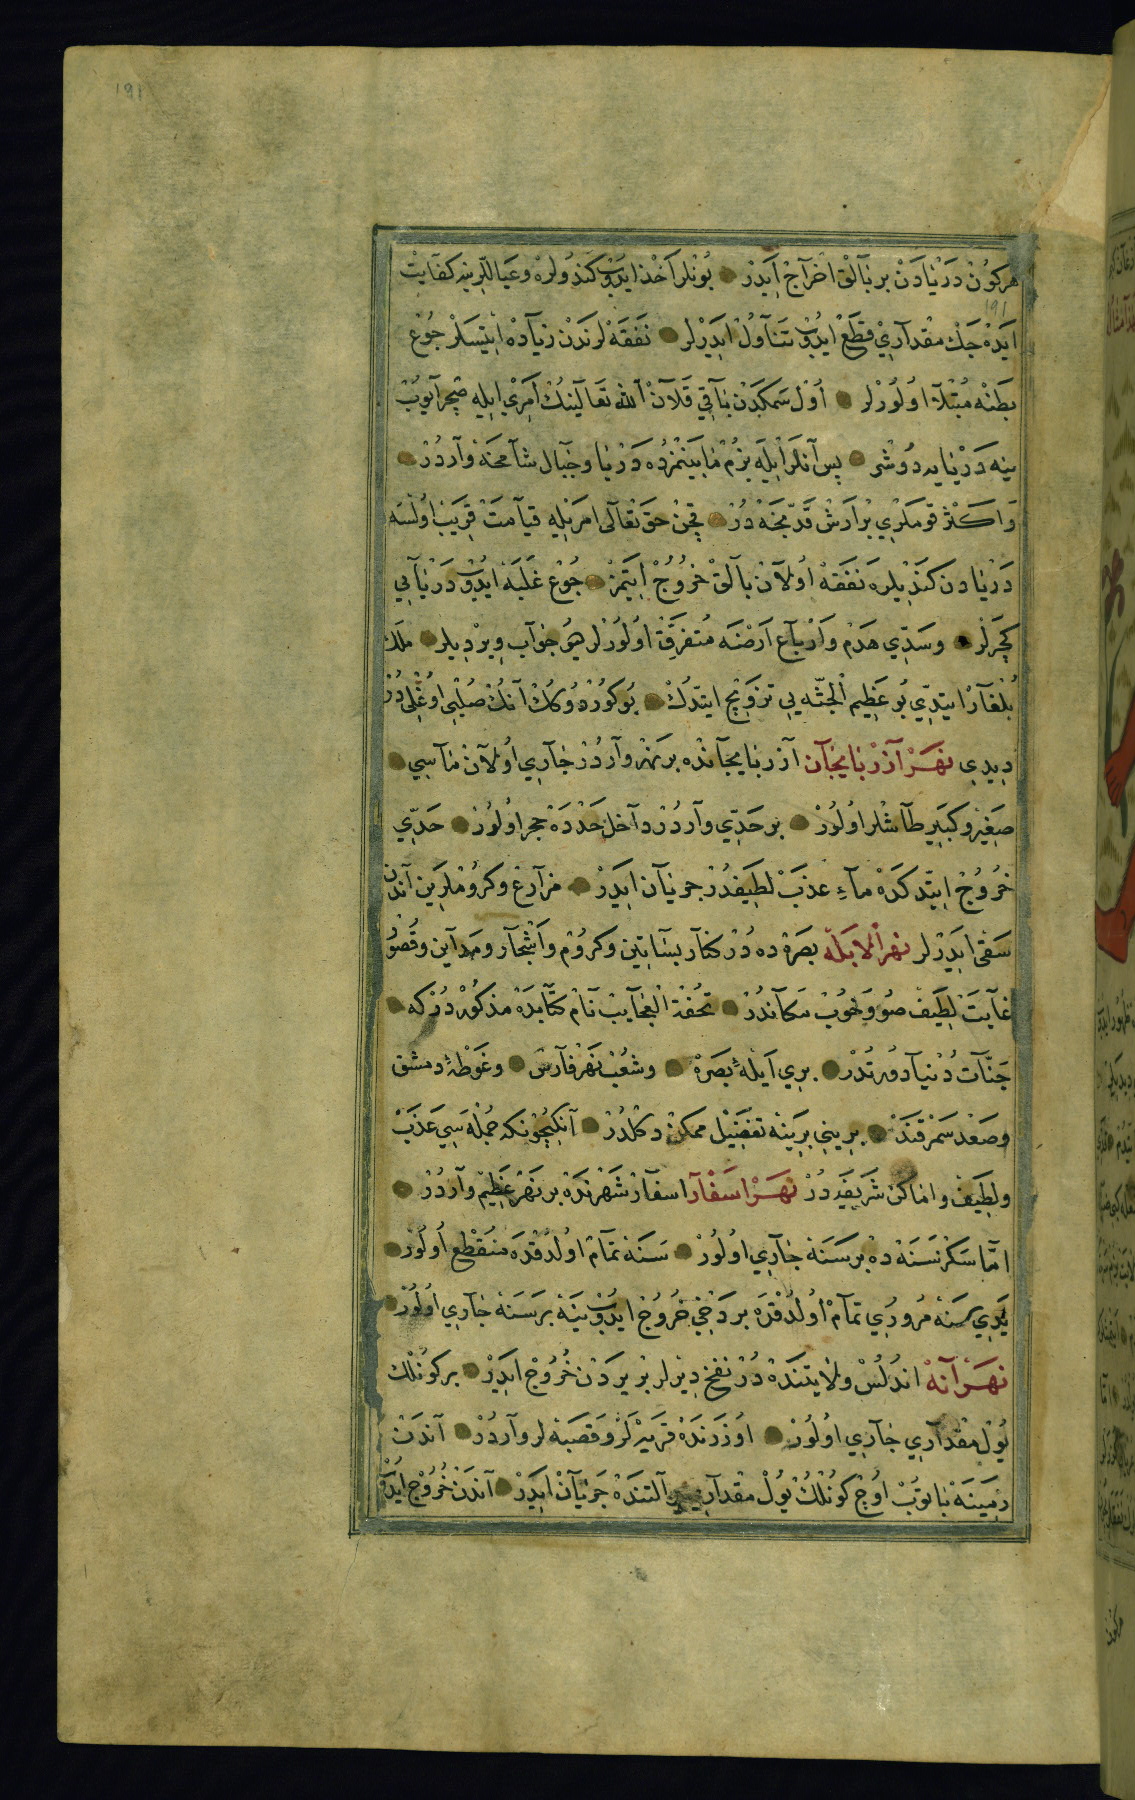 191
هر كون دريادن بر بالق اخراج ايدر بونلر اخذ ايدوب كندولره وعياللرينه كفايت
191
ايده جك مقداري قطع ايدوب تناول ايدرلر نفقه لرندن زياده ايتسلر جوع
بطنه مبتلا اولورلر اول سمكدن باقي قلان الله تعالينك امري ايله صچرايوب
ينه دريايه دوشر پس آنلر ايله بزم مابينمزده دريا وجبال شامخه واردر
واكثر قوملري برارش قد بجه در قچن حق تعالى امريله قيامت قريب اولسه
دريادن كنديلره نفقه اولان بالق خروج ايتمز جوع غلبه ايدوب دريايي
كچرلر وسدي هدم وارباع ارضه متفرق اولورلر ديو جواب ويرديلر ملك
بلغار ايتدي بو عظيم الجثه يي تزويج ايتدك بو كوردوكك آنك صلبي اوغلي در
ديدي نهر آذربايجان آذربايجانده بر نهر واردر جاري اولان ماسي
صغير وكبير طاشلر اولور بر حدي واردر داخل حدده حجر اولور حدي
خروج ايتدكده ماء عذب لطيفدر جريان ايدر مزارع وكروملرين آندن
سقى ايدرلر نهر الابله بصره ده در كنار بساتين وكروم واشجار ومداين وقصور
غايت لطيف صو ومحبوب مكاندر تحفة العجايب نام كتابده مذكوردر كه
جنات دنيا دورتدر بري ايلهء بصره وشعب نهر فارس وغوطهء دمشق
وصغد سمرقند بريني برينه تفضيل ممكن دكلدر آنكيچونكه جمله سي عذب
ولطيف واماكن شريفه در نهر اسفار اسفار شهرنده بر نهر عظيم واردر
اما سكز سنه ده بر سنه جاري اولور سنه تمام اولدقده منقطع اولور
يدي سنه مروري تمام اولدقده بر دخي خروج ايدوب ينه بر سنه جاري اولور
نهر آنه اندلس ولايتنده در نفخ ديرلر بر يردن خروج ايدر بر كونلك
يول مقداري جاري اولور اوزرنده قريه لر وقصبه لر واردر آندن
زمينه باتوب اوچ كونلك يول مقداري آلتنده جريان ايدر آندن خروج ايدر